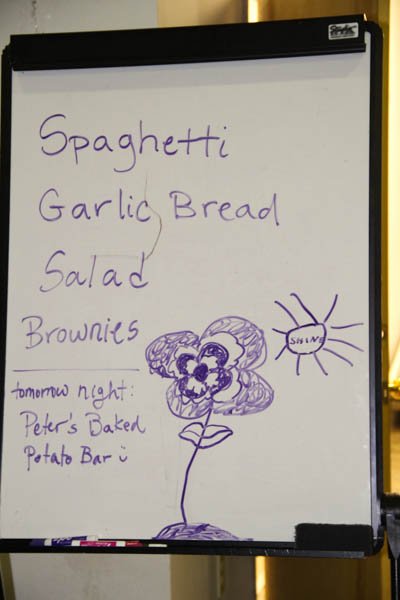 Spaghetti
Garlic Bread
Salad
Brownies
SHINE
tomorrow night:
Peter's Baked
Potato Bar